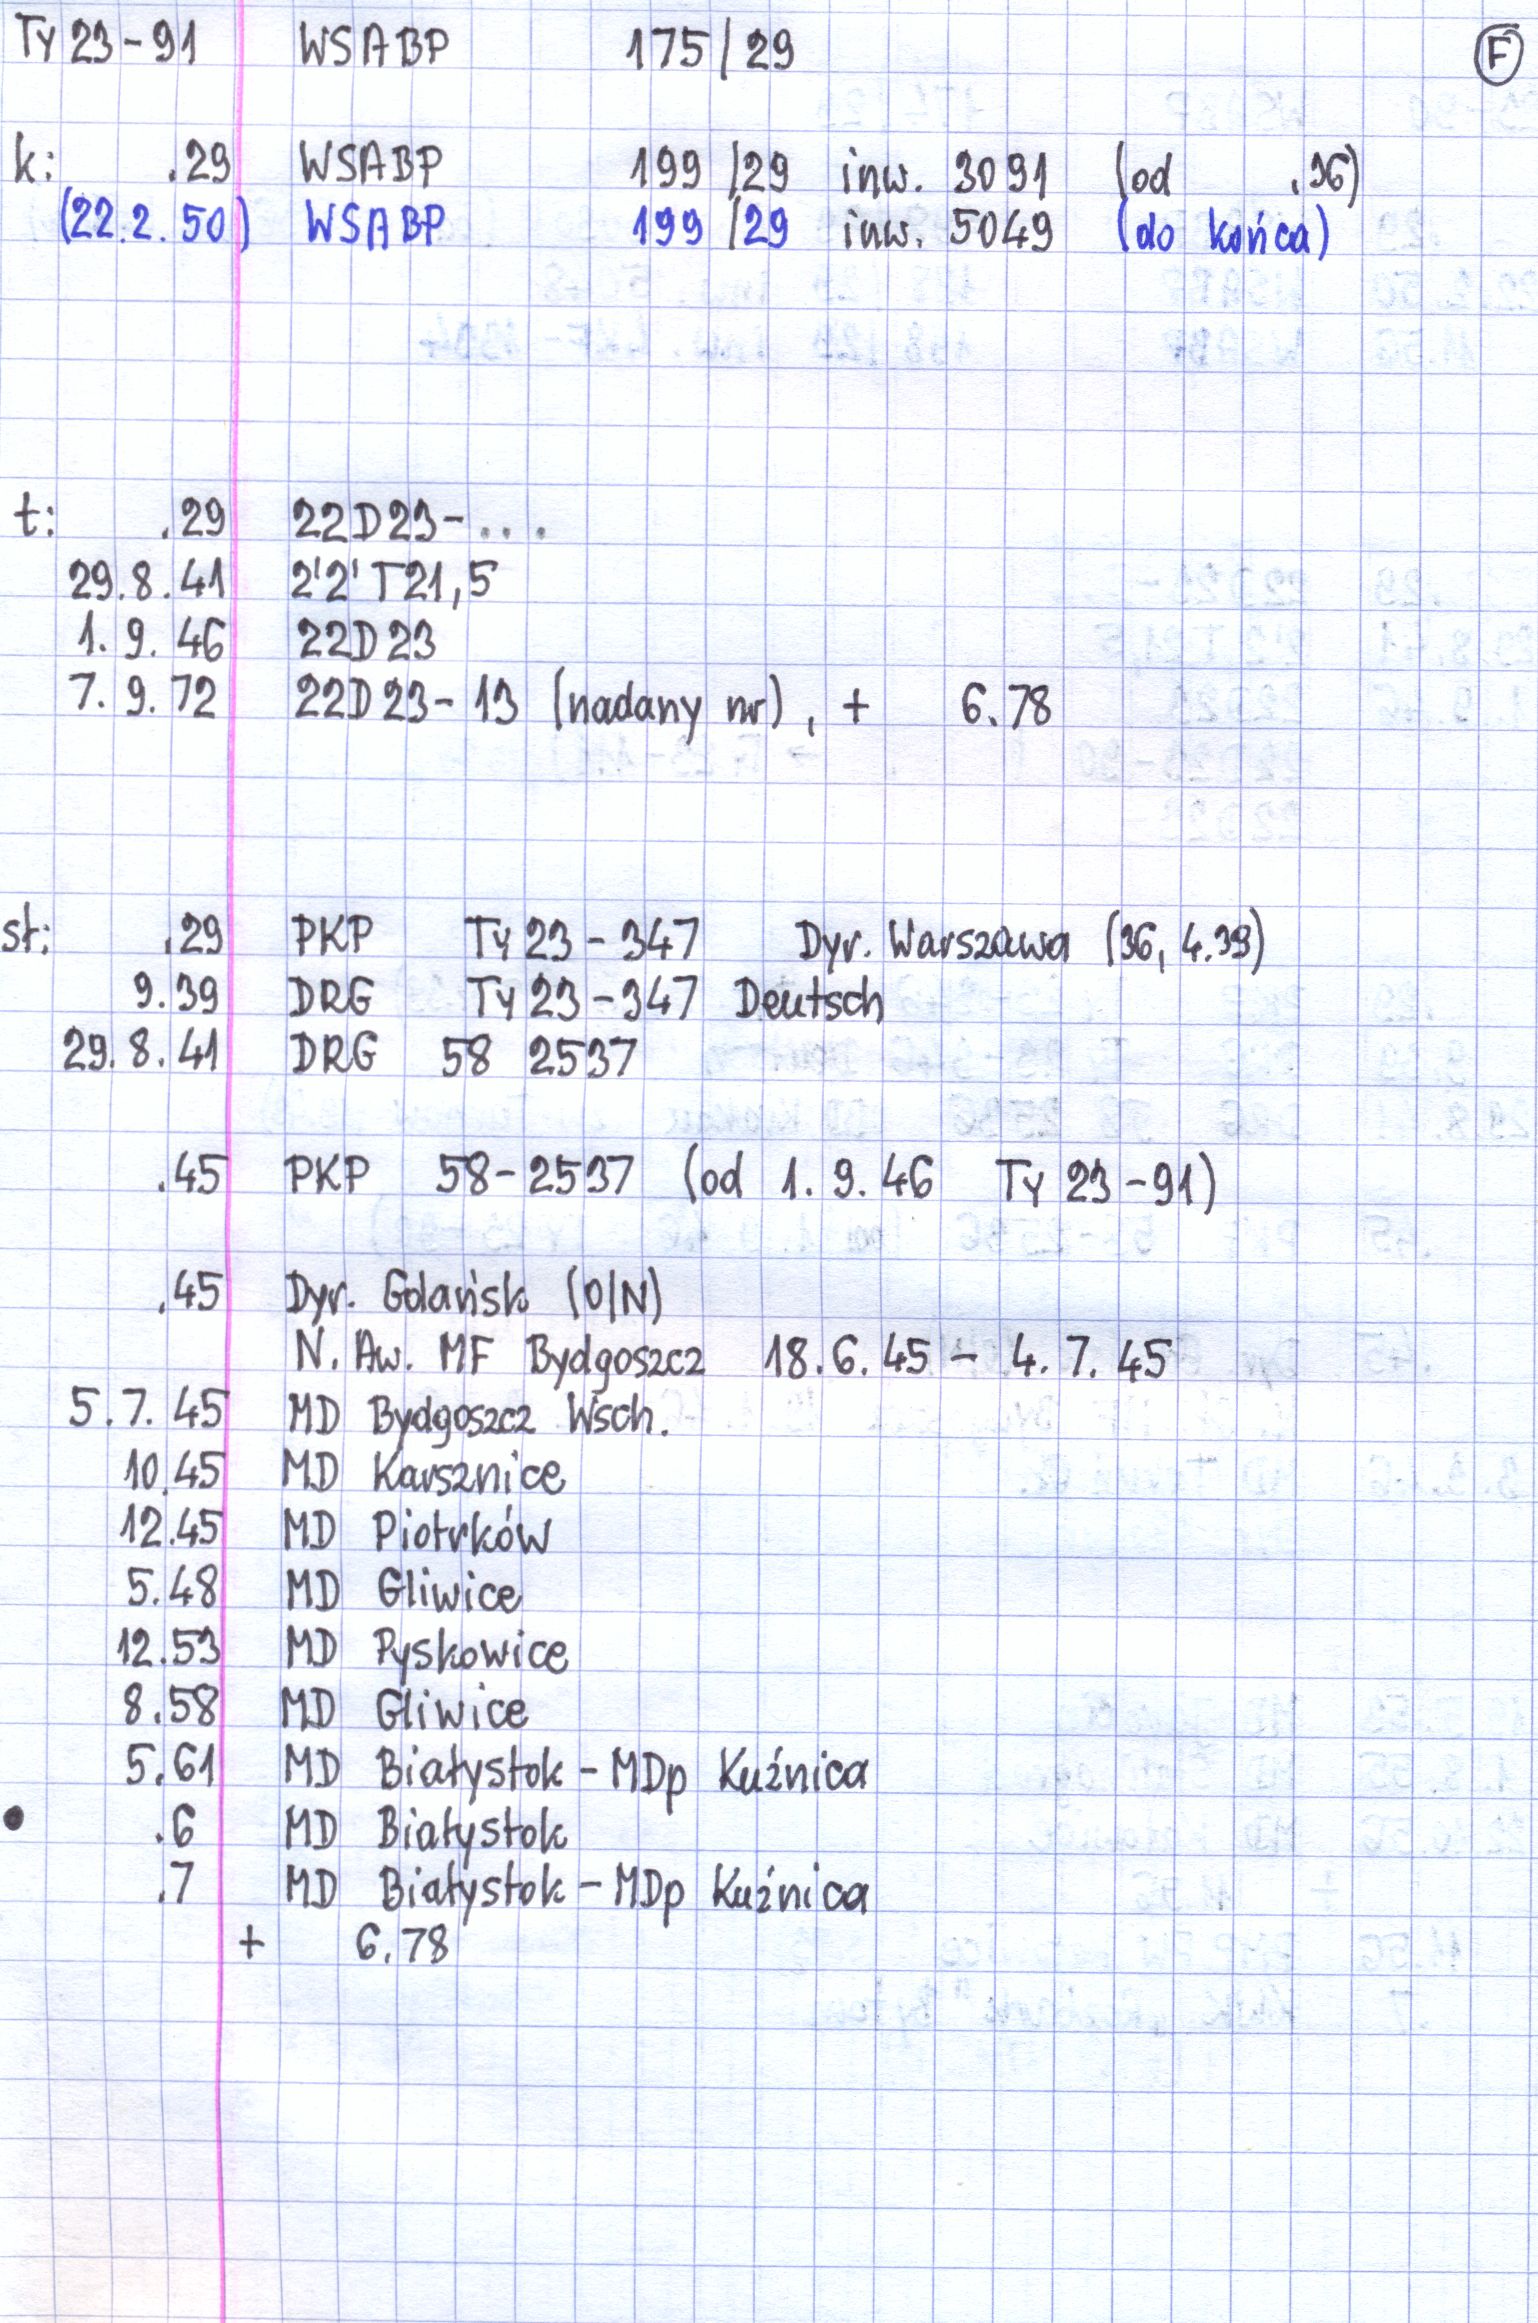 Ty 23-91 WSABP 175/29 F
k: .29 WSABP 199/29 inw. 3091 (od .36)
(22.2.50) WSABP 199/29 inw. 5049 (do końca)
t: .29 22D23-...
29.8.41 2'2'T21,5
1.9.46 22D23
7.9.72 22D23-13 (nadany nr), + 6.78
st: .29 PKP Ty 23-347 Dyr. Warszawa (36, 4.39)
9.39 DRG Ty 23-347 Deutsch
29.8.41 DRG 58 2537
.45 PKP 58-2537 (od 1.9.46 Ty 23-91)
.45 Dyr. Gdańsk (O/N)
N. Aw. MF Bydgoszcz 18.6.45 - 4.7.45
5.7.45 MD Bydgoszcz Wsch.
10.45 MD Karsznice
12.45 MD Piotrków
5.48 MD Gliwice
12.53 MD Pyskowice
8.58 MD Gliwice
5.61 MD Białystok - MDp Kuźnica
.6 MD Białystok
.7 MD Białystok - MDp Kuźnica
+ 6.78